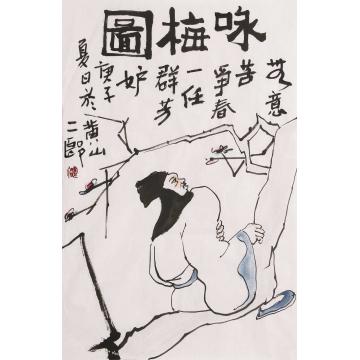 咏梅圖
无意
苦
爭春
一任
群芳
妒
庚子
夏日於
黄山
二郎